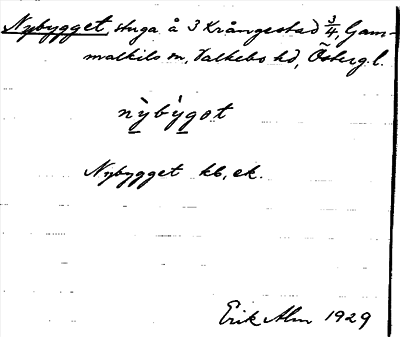 Nybygget, stuga å 3 Krångestad 3/4, Gam-
malkils sn, Valkebo hd, Östergl.
nỳbỳgot
Nybygget kb, ek.
Erik Alm 1929